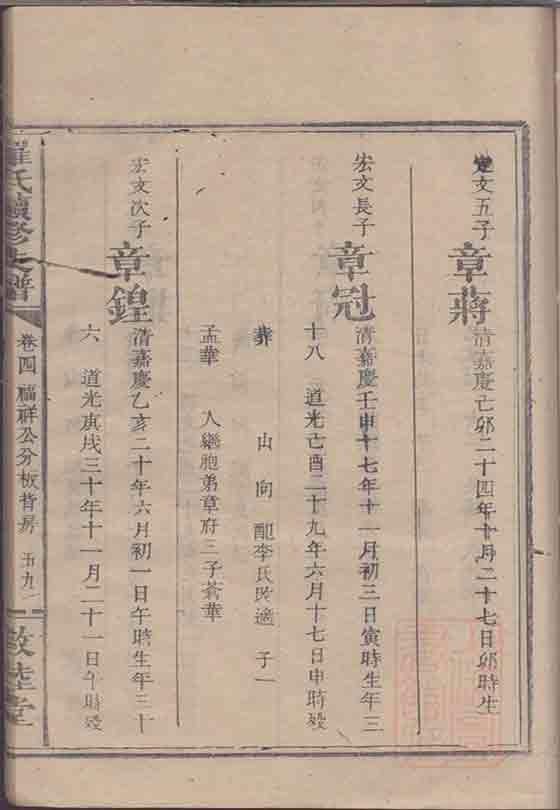 定文五子
章蔣
清嘉慶己卯二十四年十月二十七日卯時生
宏文長子
章冠
清嘉慶壬申十七年十一月初三日寅時生年三
十八 道光己酉二十九年六月十七日申時歿
葬 山 向 配李氏改適 子一
孟華 入繼胞弟章府三子蒼華
宏文次子
章鍠
清嘉慶乙亥二十年六月初一日午時生年三十
六 道光庚戌三十年十一月二十一日午時歿
羅氏續修支譜
卷四 福祥公分板背房 五九
敦睦堂